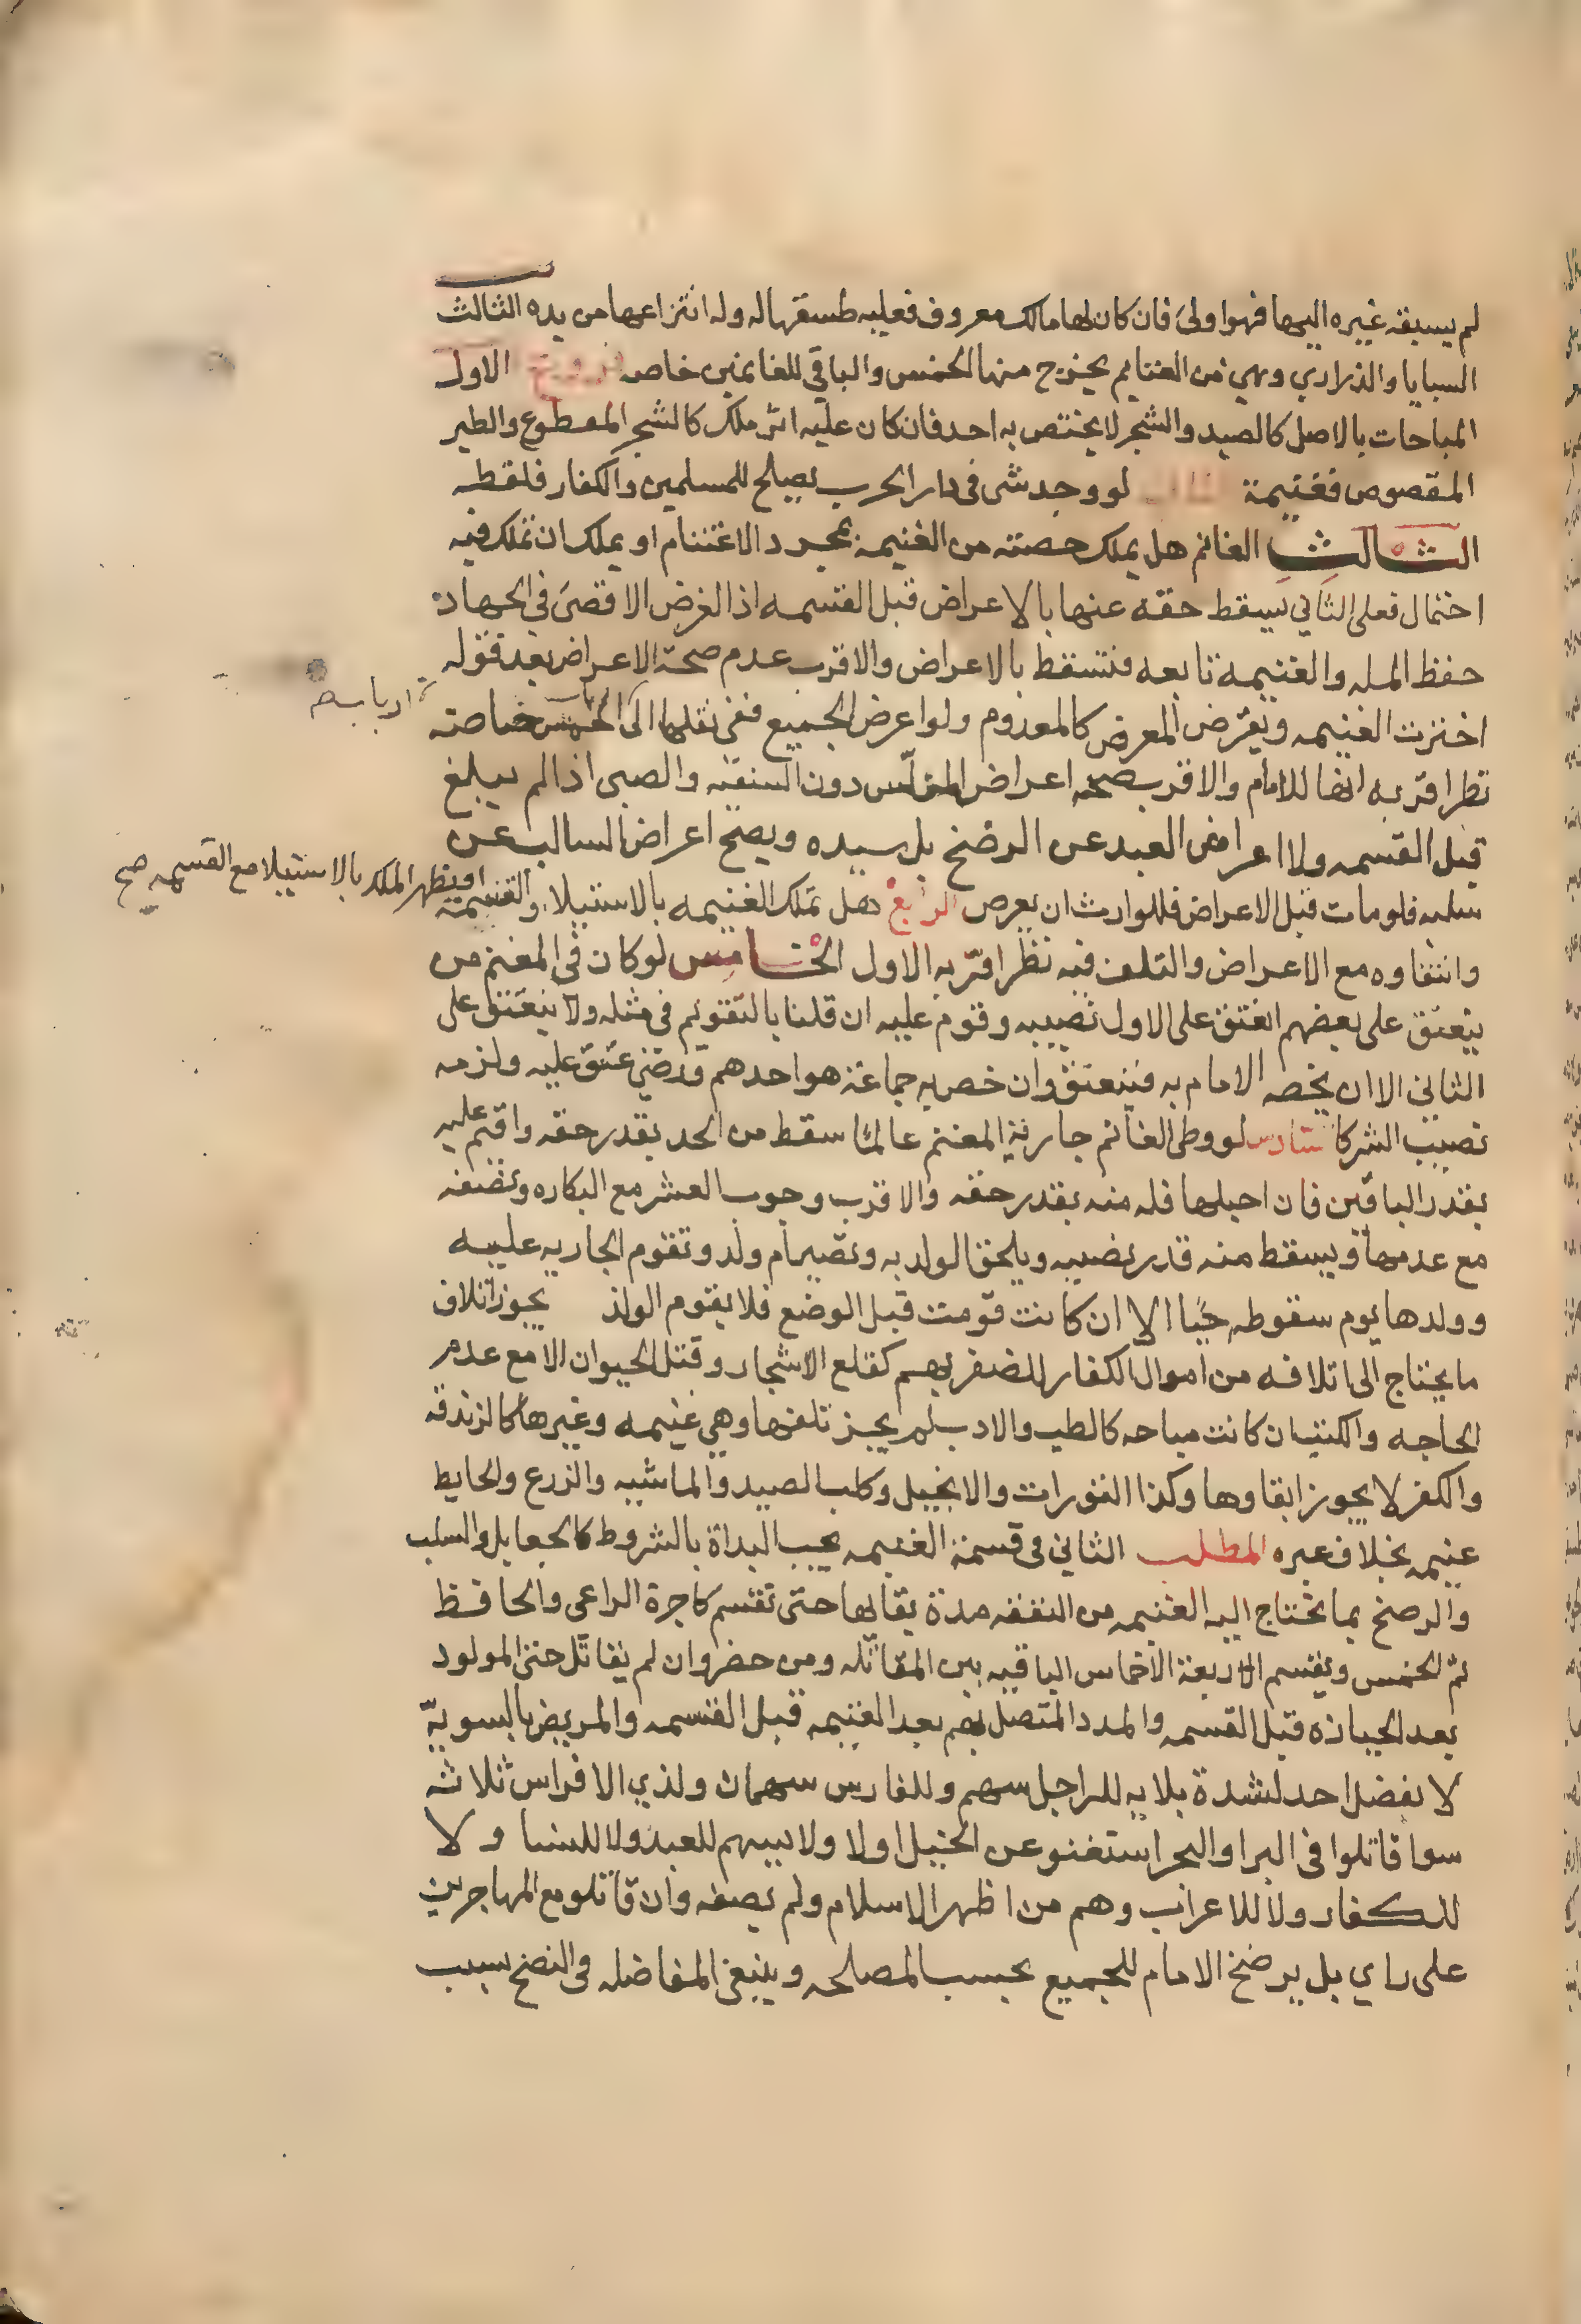 لم يسبقه غيره اليها فهو اولى فان كان لها مالك معروف فعليه طسقها له وله انتزاعها من يده الثالث
السبايا والذراري وهي من الغنايم يخرج منها الخمس والباقي للغانمين خاصه فروع الاول
المباحات بالاصل كالصيد والشجر لا يختص به احد فان كان عليه اثر ملك كالشجر المقطوع والطير
المقصوص فغنيمة لو وجد شى فى دار الحرب يصلح للمسلمين والكفار فلقطه
الثالث الغانم هل يملك حصته من الغنيمه بمجرد الاغتنام او يملك ان تملك فيه
احتمال فعلى الثاني يسقط حقه عنها بالاعراض قبل القسمه اذ الغرض الاقصى في الجهاد
حفظ المله والغنيمة تابعه فتسقط بالاعراض والاقرب عدم صحة الاعراض بعد قوله
اخترت الغنيمه ويفرض المعرض كالمعدوم ولو اعرض الجميع ففى نقلها الى الخمس خاصته
اربابه
نظر اقربه انها للامام والاقرب صحه اعراض المفلس دون السفيه والصبى اذا لم يبلغ
قبل القسمه ولا اعراض العبد عن الرضخ بل سيده ويصح اعراض السالب عن
سلبه فلو مات قبل الاعراض فللوارث ان يعرض الرابع هل تملك الغنيمه بالاستيلا والقسمة
او يظهر الملك بالاستيلا مع القسمه صح
وانتفاوه مع الاعراض والتلف فيه نظر اقربه الاول الخامس لو كان فى المغنم من
ينعتق على بعضهم انعتق على الاول نصيبه وقوم عليه ان قلنا بالتقويم فى مثله ولا ينعتق على
الثانى الا ان يخصه الامام به فينعتق وان خص به جماعة هو احدهم ورضي عتق عليه ولزمه
نصيب الشركا السادس لو وطى الغانم جارية المغنم عالما سقط من الحد بقدر حقه واقيم عليه
بقدر الباقين فان احبلها فله منه بقدر حقه والاقرب وجوب العشر مع البكاره ونصفه
مع عدمها ويسقط منه قدر نصيبه ويلحق الولد به وتصير ام ولد وتقوم الجاريه عليه
وولدها يوم سقوطه حيا الا ان كانت قومت قبل الوضع فلا يقوم الولد يجوز اتلاف
ما يحتاج الى اتلافه من اموال الكفار للضفر بهم كقلع الاشجار وقتل الحيوان الا مع عدم
الحاجه والكتب ان كانت مباحه كالطب والادب لم يجز تلفها وهي غنيمه وغيرها كالزندقه
والكفر لا يجوز ابقاوها وكذا التورات والانجيل وكلب الصيد والماشيه والزرع والحايط
غنيمه بخلاف غيره المطلب الثاني فى قسمة الغنيمه يجب البداة بالشروط كالجعايل والسلب
والرضخ بما تحتاج اليه الغنيمه من النفقه مدة بقائها حتى تقسم كاجرة الراعى والحافظ
ثم الخمس ويقسم الاربعة الاخماس الباقيه بين المقاتله ومن حضر وان لم يقاتل حتى المولود
بعد الحيازه قبل القسمه والمدد المتصل بهم بعد الغنيمه قبل القسمه والمريض بالسوية
لا يفضل احد لشدة بلايه للراجل سهم وللفارس سهمان ولذي الافراس ثلاثه
سوا قاتلوا فى البر او البحر استغنو عن الخيل اولا ولا يسهم للعبد ولا للنسا ولا
للكفار ولا للاعراب وهم من اظهر الاسلام ولم يصفه وان قاتلو مع المهاجرين
على راي بل يرضخ الامام للجميع بحسب المصلحه وينبغى المفاضله فى الرضخ بسبب